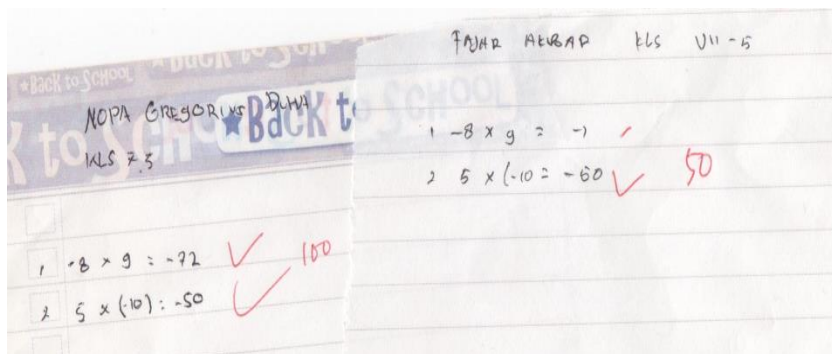 ★Back to School
NOPA GREGORIUS DUHA
★Back to
KLS 7.5
1 -8 x 9 = -72
100
2 5 x (-10) = -50
FAJAR AKBAR KLS VII - 5
1 -8 x 9 = -1
2 5 x (-10 = -50
50